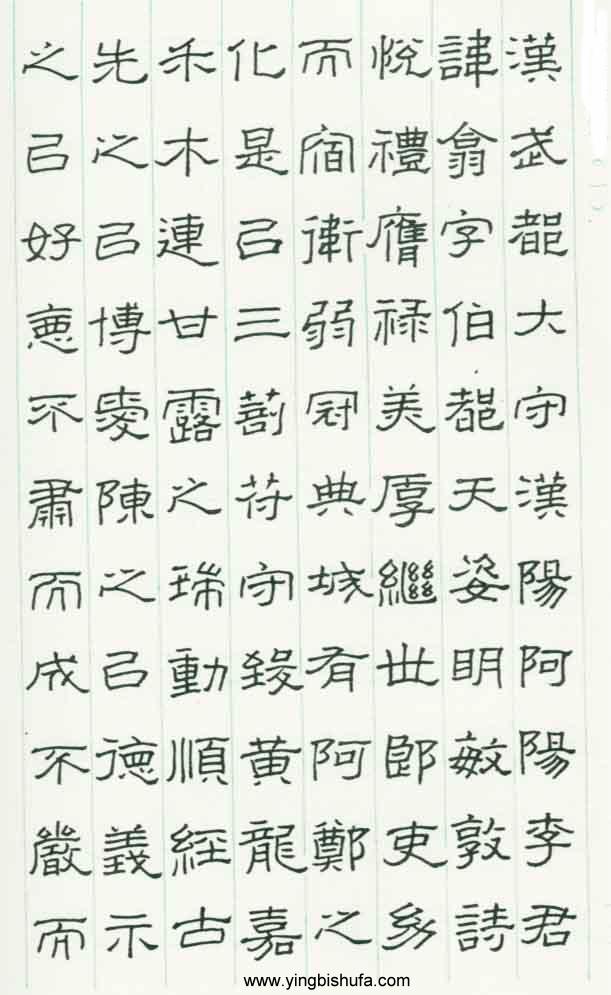 漢武都大守漢陽阿陽李君
諱翕字伯都天姿明敏敦詩
悅禮膺禄美厚繼世郎吏幼
而宿衛弱冠典城有阿鄭之
化是㠯三剖苻守致黃龍嘉
禾木連甘露之瑞動順經古
先之㠯博愛陳之㠯德義示
之㠯好惡不肅而成不嚴而
www.yingbishufa.com